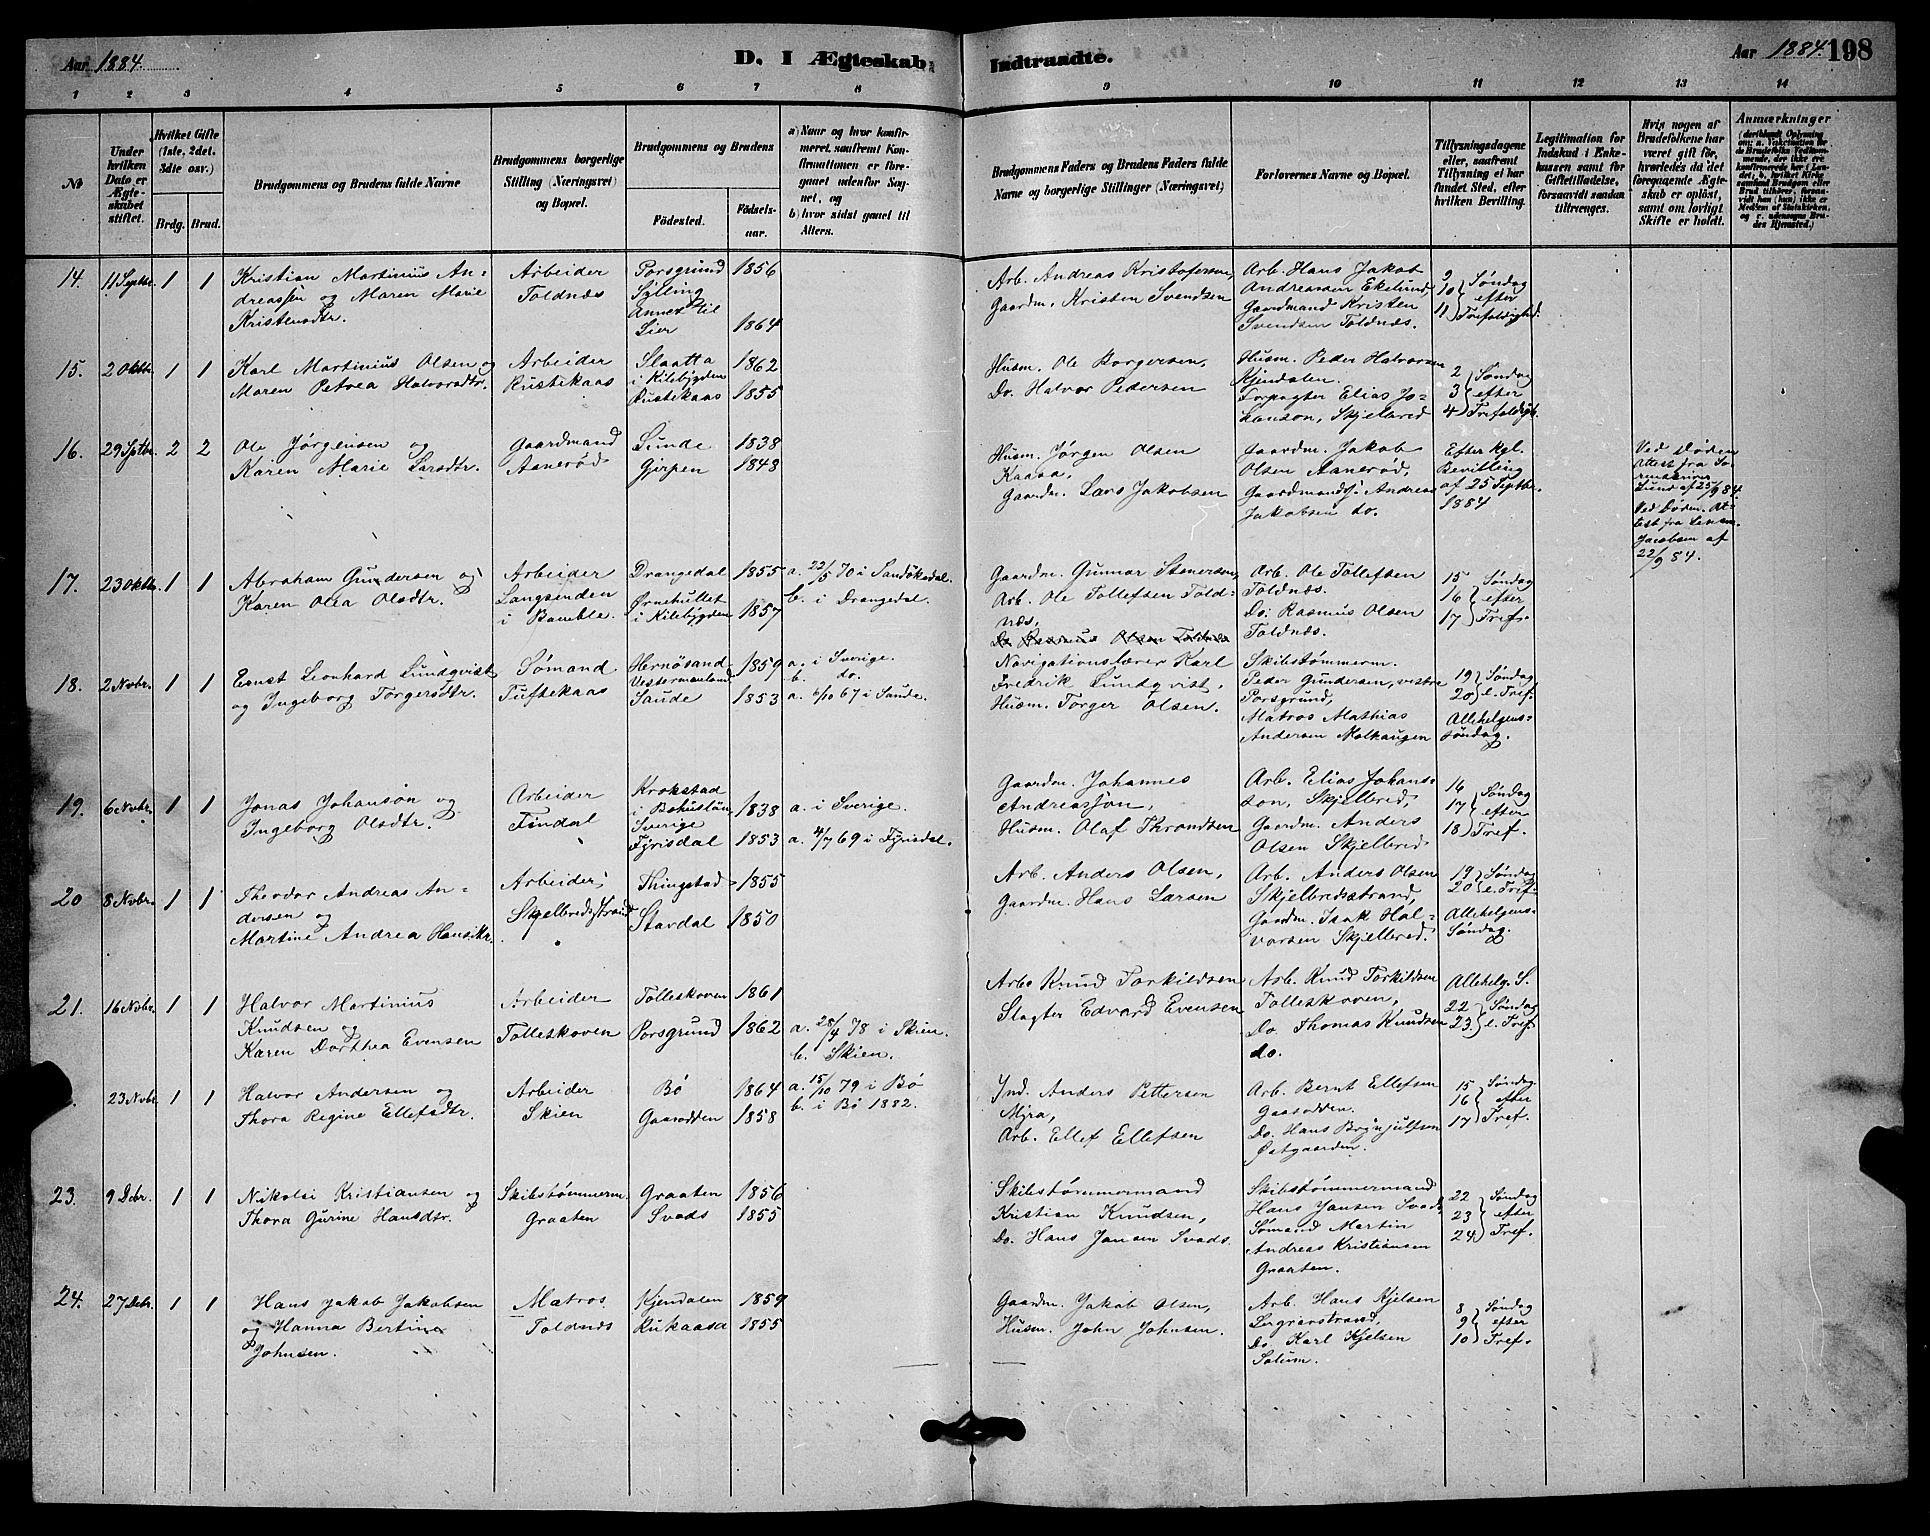 Aar 1884.
D. I Ægteskab
Indtraadte.
Aar 1884.
198
1 2 3 4 5 6 7 8 9 10 11 12 13 14
No
Under hvilken Dato er Ægteskabet stiftet.
Hvilket Gifte (1ste, 2det, 3die osv.)
Brdg. Brud.
Brudgommens og Brudens fulde Navne
Brudgommens borgerlige Stilling (Næringsvei) og Bopæl.
Brudgommens og Brudens
Fødested.
Fødselsaar.
a) Naar og hvor konfirmeret, saafremt Konfirmationen er foregaaet udenfor Sognet, og
b) hvor sidst gaaet til Alters.
Brudgommens Faders og Brudens Faders fulde Navne og borgerlige Stillinger (Næringsvei)
Forlovernes Navne og Bopæl.
Tillysningsdagene eller, saafremt Tillysning ei har fundet Sted, efter hvilken Bevilling.
Legitimation for Indskud i Enkekassen samt for Giftetilladelse, forsaavidt saadan tiltrænges.
Hvis nogen af Brudefolkene har været gift før, hvorledes da det foregaaende Ægteskab er opløst, samt om lovligt Skifte er holdt.
Anmærkninger
14. 11 Septbr. 1 1
Kristian Martinius An-
dreassen og Maren Marie
Kristensdtr.
Arbeider
Toldnæs
Porsgrund 1856
Sylling
Annex til
Lier 1864
Arb. Andreas Kristofersen,
Gaardm. Kristen Svendsen
Arb. Hans Jakob
Andreassen Ekelund,
Gaardmand Kristen
Svendsen Toldnæs.
9 10 11 Søndag efter Trefoldighed.
15. 2 Oktbr. 1 1
Karl Martinius Olsen og
Maren Petrea Halvorsdtr.
Arbeider
Rustikaas
Slaatta 1862
i Kilebygden
Rustikaas 1855
Husm. Ole Borgersen,
Do. Halvor Pedersen
Husm. Peder Halvorsen
Kjendalen.
Forpagter Elias Jo-
hanson, Skjelbred
2 3 4 Søndag efter Trefoldigh.
16. 29 Sptbr. 2 2
Ole Jørgensen og
Karen Marie Larsdtr.
Gaardmand
Aanerød
Sunde 1838
Gjerpen 1843
Husm. Jørgen Olsen
Kaasa,
Gaardm. Lars Jakobsen
Gaardm. Jakob
Olsen Aanerød,
Gaardmands. Andreas
Jakobsen do.
Efter kgl.
Bevilling
af 25 Septbr.
1884
Ved Døden
Attest fra
Lund af 25/9 84.
Ved Døden. At-
test fra Lensm.
Jacobsen af
22/9 84.
17. 23 Oktbr. 1 1
Abraham Gundersen og
Karen Olea Olsdtr.
Arbeider
Langsenden
i Bamble.
Drangedal 1855
Ørnehullet
i Kilebygden 1857
a. 22/5 70 i Sandøkedal.
b. i Drangedal.
Gaardm. Gunnar Stenersen,
Arb. Ole Tollefsen Told-
næs,
Do. Rasmus Olsen Toldnæs
Arb. Ole Tollefsen
Toldnæs.
Do. Rasmus Olsen
Toldnæs.
15 16 17 Søndag efter Tref.
18. 2 Novbr. 1 1
Ernst Leonhard Lundqvist
og Ingeborg Torgersdtr.
Sømand
Tuftekaas
Hernösand 1859
Vestermanland
Saude 1853
a. i Sverige.
b. do.
a. 6/10 67 i Saude.
Navigationslærer Karl
Fredrik Lundqvist,
Husm. Torger Olsen.
Skibstømmerm.
Peder Gundersen, vestre
Porsgrund,
Matros Mathias
Andersen Malhaugen
19 20 Søndag e. Tref.
Allehelgens-
søndag.
19. 6 Novbr. 1 1
Jonas Johanson og
Ingeborg Olsdtr.
Arbeider
Findal
Krokstad
i Bohuslän 1838
Sverige
Fyrisdal 1853
a. i Sverige.
a. 4/7 69 i Fyrisdal.
Gaardm. Johannes
Andreasson,
Husm. Olaf Throndsen
Arb. Elias Johans-
son, Skjelbred,
Gaardm. Anders
Olsen Skjelbred.
16 17 18 Søndag efter Tref.
20 8 Novbr. 1 1
Theodor Andreas An-
dersen og
Martine Andrea Hansdtr.
Arbeider,
Skjelbredsstrand
Thingstad 1855
Stavdal 1850
Arb. Anders Olsen,
Gaardm. Hans Larsen
Arb. Anders Olsen
Skjelbredsstrand,
Gaardm. Isak Hal-
vorsen Skjelbred.
19 20 Søndag e. Tref.
Allehelgens-
Søndag.
21. 16 Novbr. 1 1
Halvor Martinius
Knudsen og
Karen Dorthea Evensen
Arbeider
Tolleskoven
Tolleskoven 1861
Porsgrund 1862
a. 28/4 78 i Skien.
b. Skien.
Arb. Knud Torkildsen
Slagter Edvard Evensen
Arb. Knud Torkildsen
Tolleskoven,
Do. Thomas Knudsen
do.
Allehelg. S.
22 23 Søndag e. Tref.
23 Novbr. 1 1
Halvor Andersen og
Thora Regine Ellefsdtr.
Arbeider
Skien
Bø 1864
Gaasodden 1858
a. 15/10 79 i Bø
b. i Bø 1882.
Ind. Anders Pettersen
Myra,
Arb. Ellef Ellefsen
Arb. Bernt Ellefsen
Gaasodden.
Do. Hans Brynjulfsen
Østgaarden.
15 16 17 Søndag efter Tref.
23. 9 Debr. 1 1
Nikolai Kristiansen og
Thora Gurine Hansdtr.
Skibstømmerm.
Graaten
Graaten 1856
Svads 1855
Skibstømmermand
Kristian Knudsen,
Do. Hans Jansen Svads.
Skibstømmermand
Hans Jansen Svads,
Sømand Martin
Andreas Kristiansen
Graaten.
22 23 24 Søndag efter Tref.
24. 27 Debr. 1 1
Hans Jakob Jakobsen
og Hanna Bertine
Johnsen.
Matros
Toldnæs
Kjendalen 1859
Rukaasa 1855
Gaardm. Jakob Olsen,
Husm. John Johnsen.
Arb. Hans Kjelsen
Do. Karl Kjelsen
Solum.
8 9 10 Søndag efter Tref.